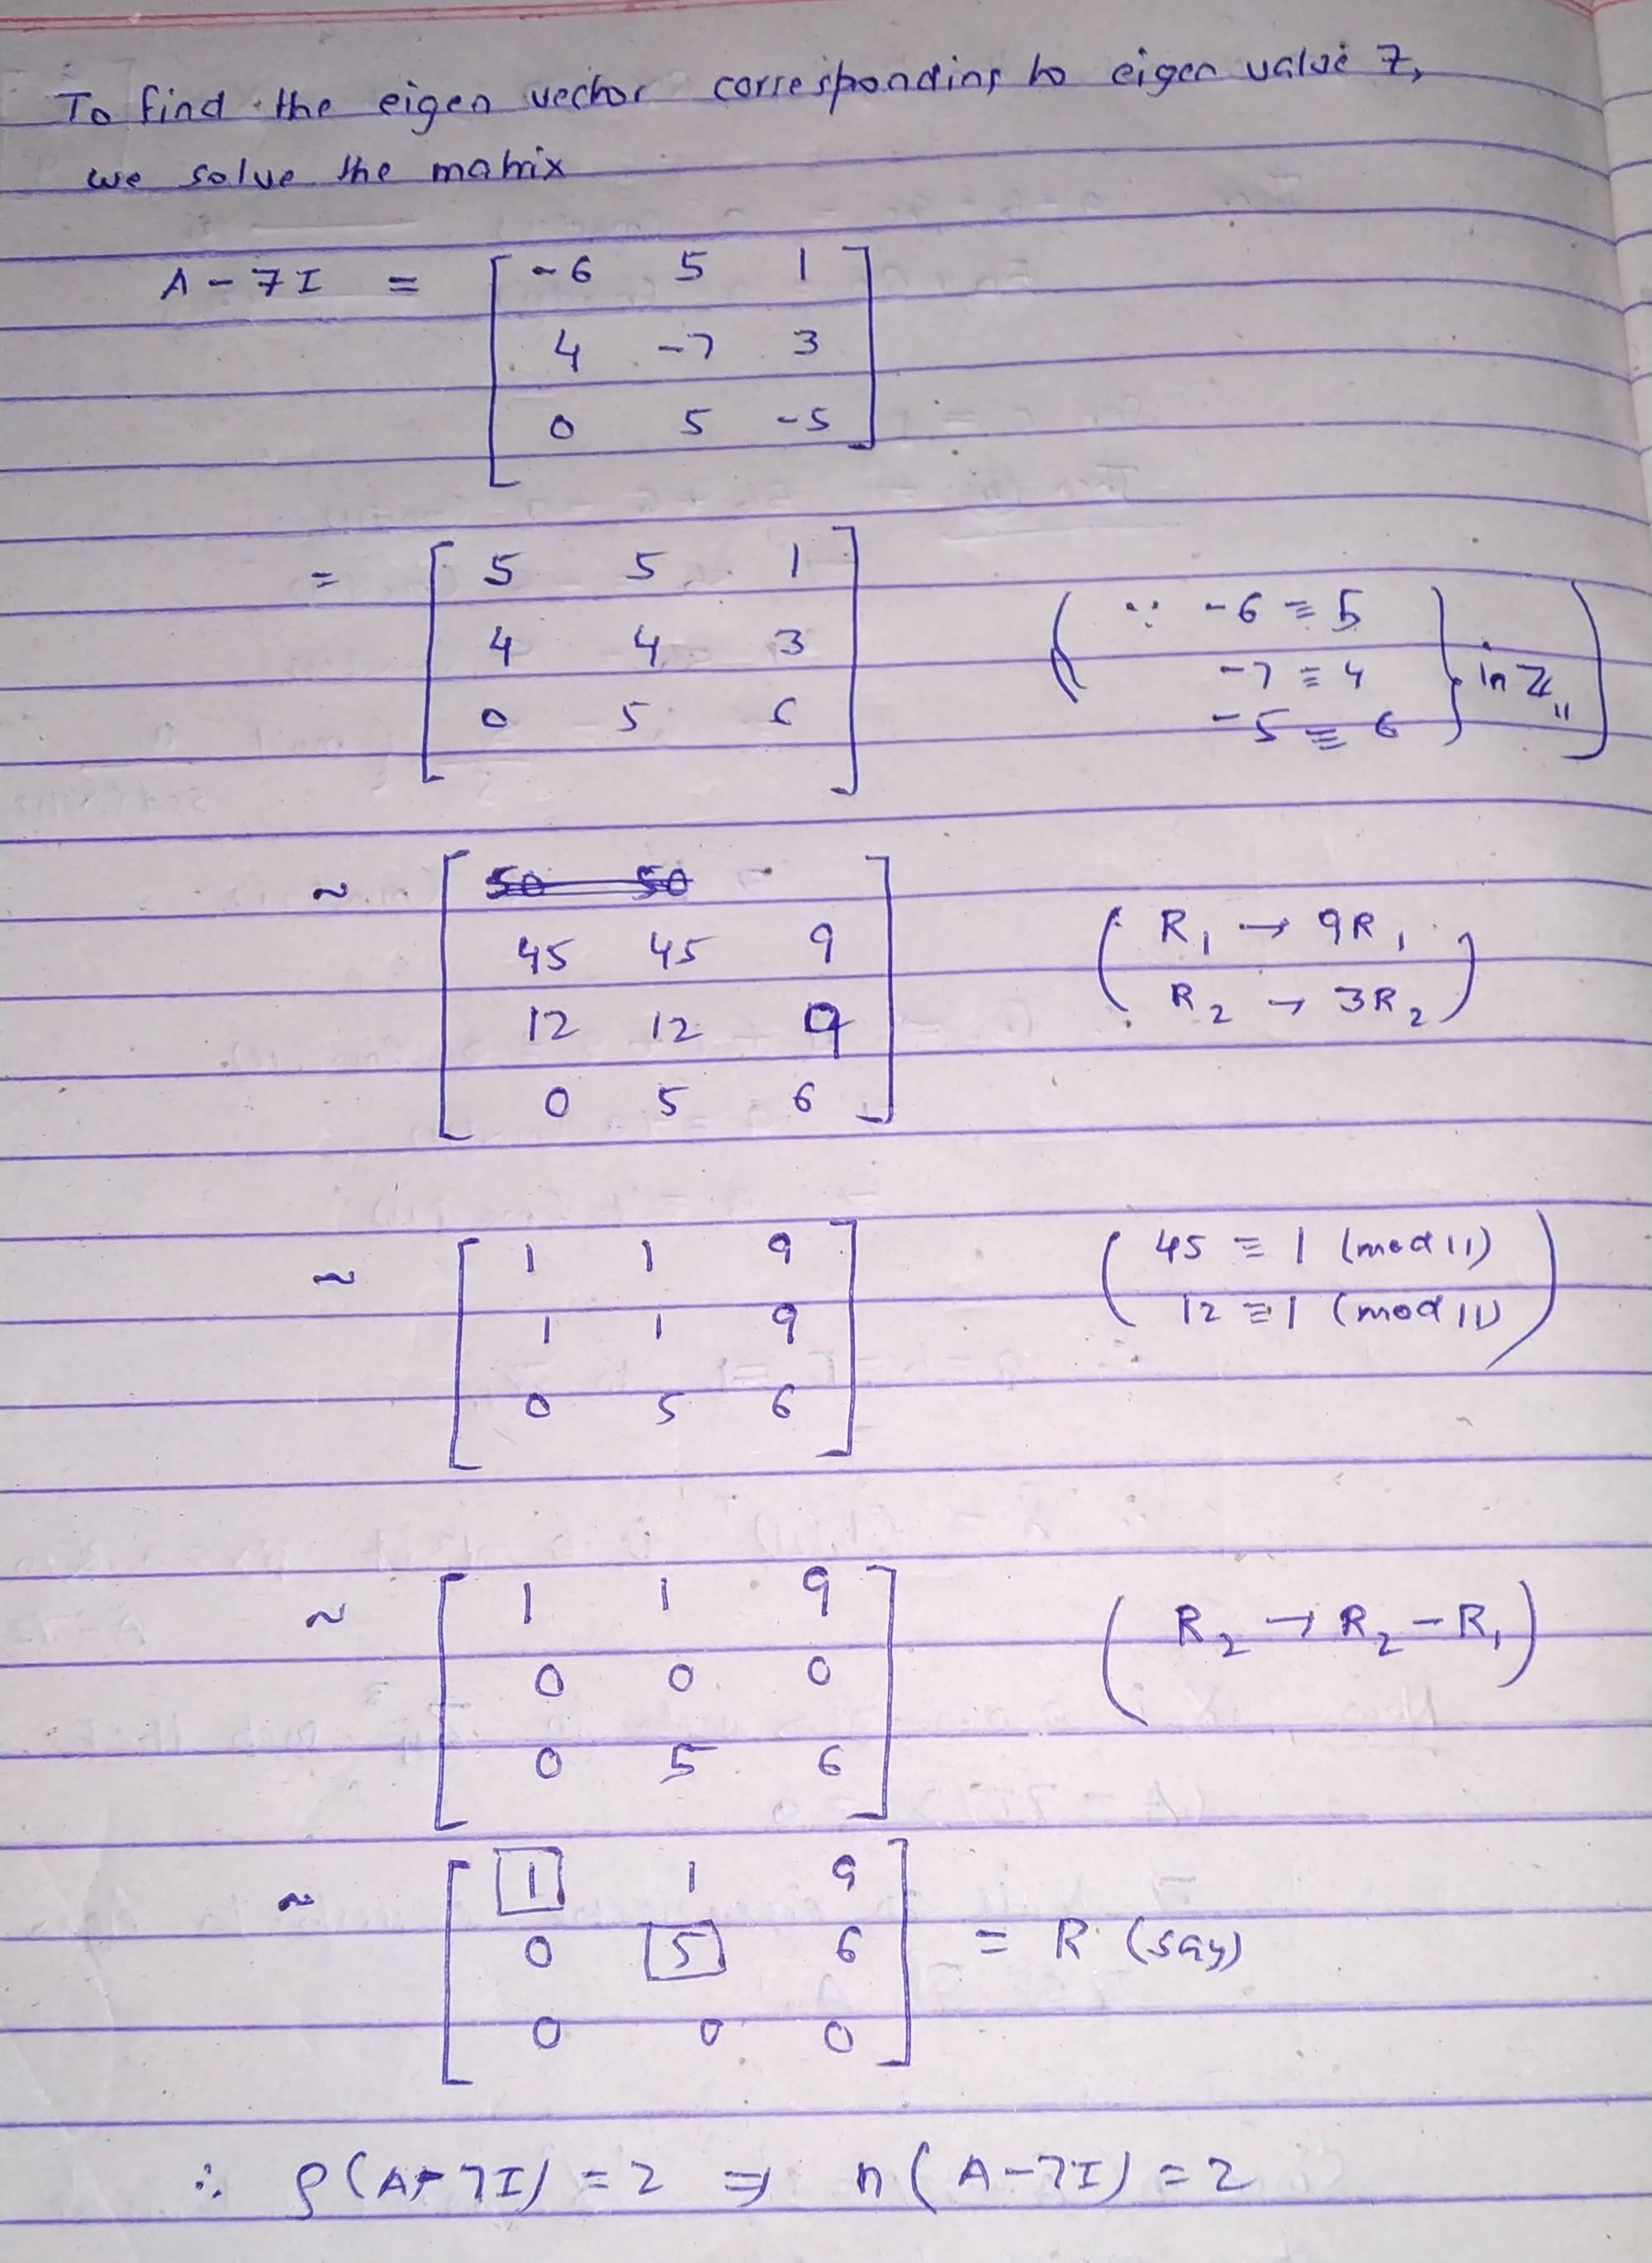 To find the eigen vector corresponding to eigen value 7,
we solve the matrix
A - 7I = [ -6 5 1
4 -7 3
0 5 -5 ]
= [ 5 5 1
4 4 3
0 5 6 ] ( ∵ -6 ≡ 5
-7 ≡ 4
-5 ≡ 6 } in Z₁₁ )
~ [ 45 45 9
12 12 9
0 5 6 ] ( R₁ → 9R₁
R₂ → 3R₂ )
~ [ 1 1 9
1 1 9
0 5 6 ] ( 45 ≡ 1 (mod 11)
12 ≡ 1 (mod 11) )
~ [ 1 1 9
0 0 0
0 5 6 ] ( R₂ → R₂ - R₁ )
~ [ 1 1 9
0 5 6
0 0 0 ] = R (say)
∴ ρ(A-7I) = 2 ⇒ n(A-7I) = 2